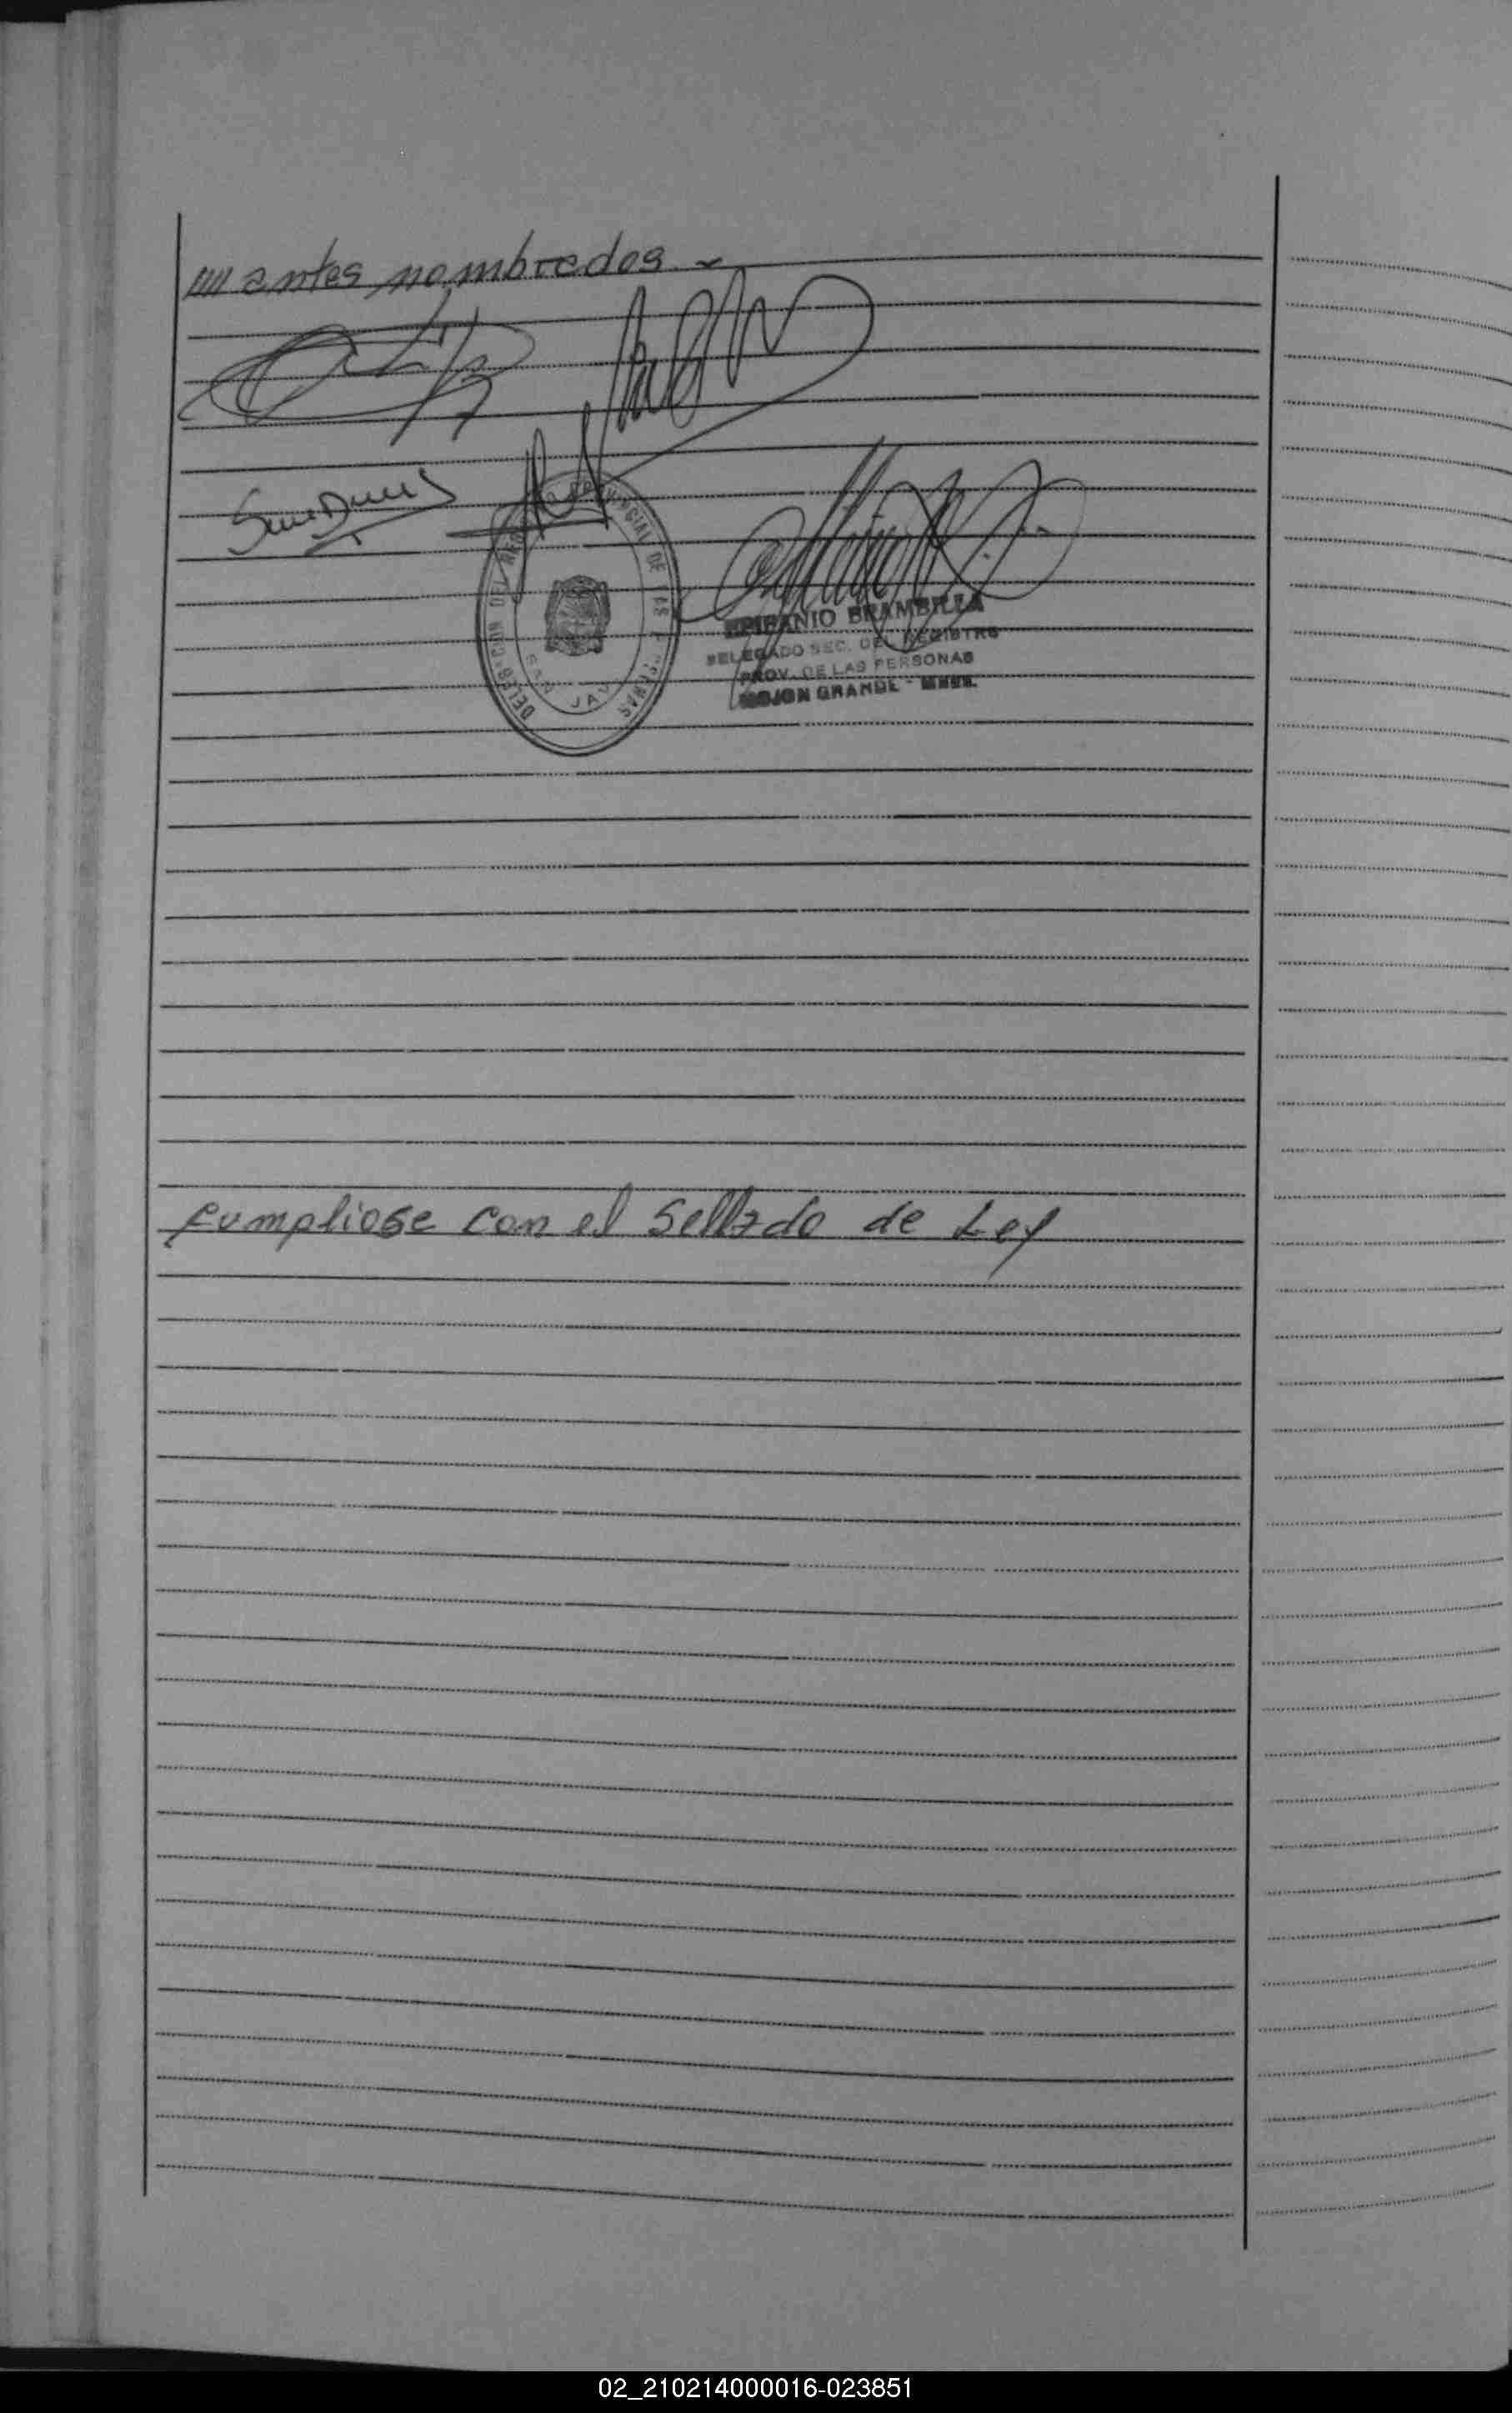 //// antes nombrados.-
DELEGACION DEL REGISTRO PROVINCIAL DE LAS PERSONAS
SAN JAV
EPIFANIO BRAMBILLA
DELEGADO SEC. DEL REGISTRO
PROV. DE LAS PERSONAS
MOJON GRANDE - MNES.
Cumpliose con el Sellado de Ley
02_210214000016-023851